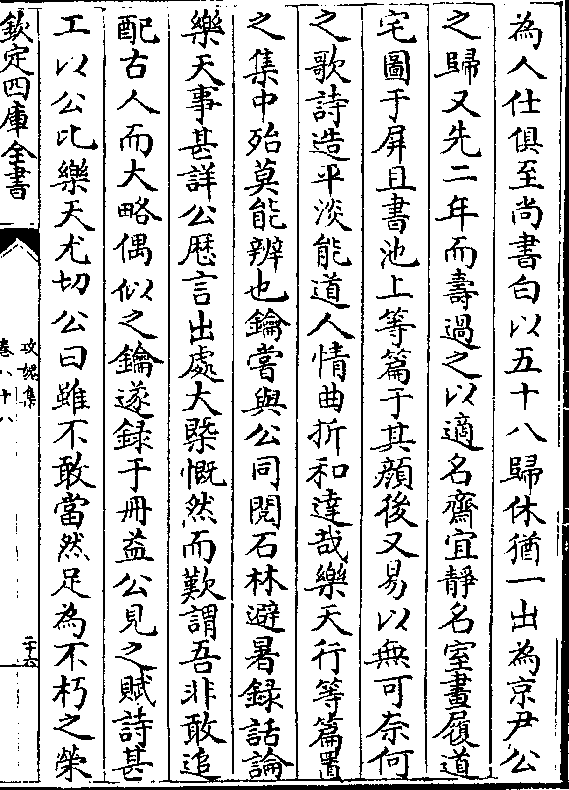 為人仕俱至尚書白以五十八歸休猶一出為京尹公
之歸又先二年而壽過之以適名齋宜靜名室畫履道
宅圖于屏且書池上等篇于其顔後又易以無可奈何
之歌詩造平淡能道人情曲折和達哉樂天行等篇置
之集中殆莫能辨也鑰嘗與公同閱石林避暑録話論
樂天事甚詳公歴言出處大槩慨然而歎謂吾非敢追
配古人而大略偶似之鑰遂録于册益公見之賦詩甚
工以公比樂天尤切公曰雖不敢當然足為不朽之榮
欽定四庫全書
攻媿集
卷八十八
二十六